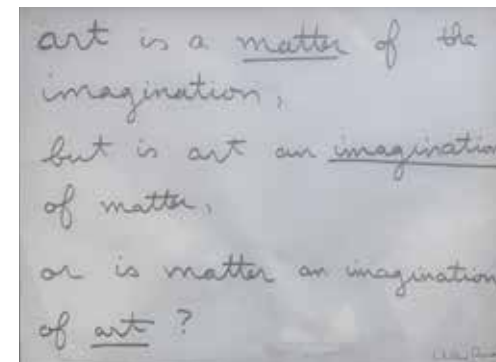 art is a matter of the
imagination,
but is art an imagination
of matter,
or is matter an imagination
of art ?